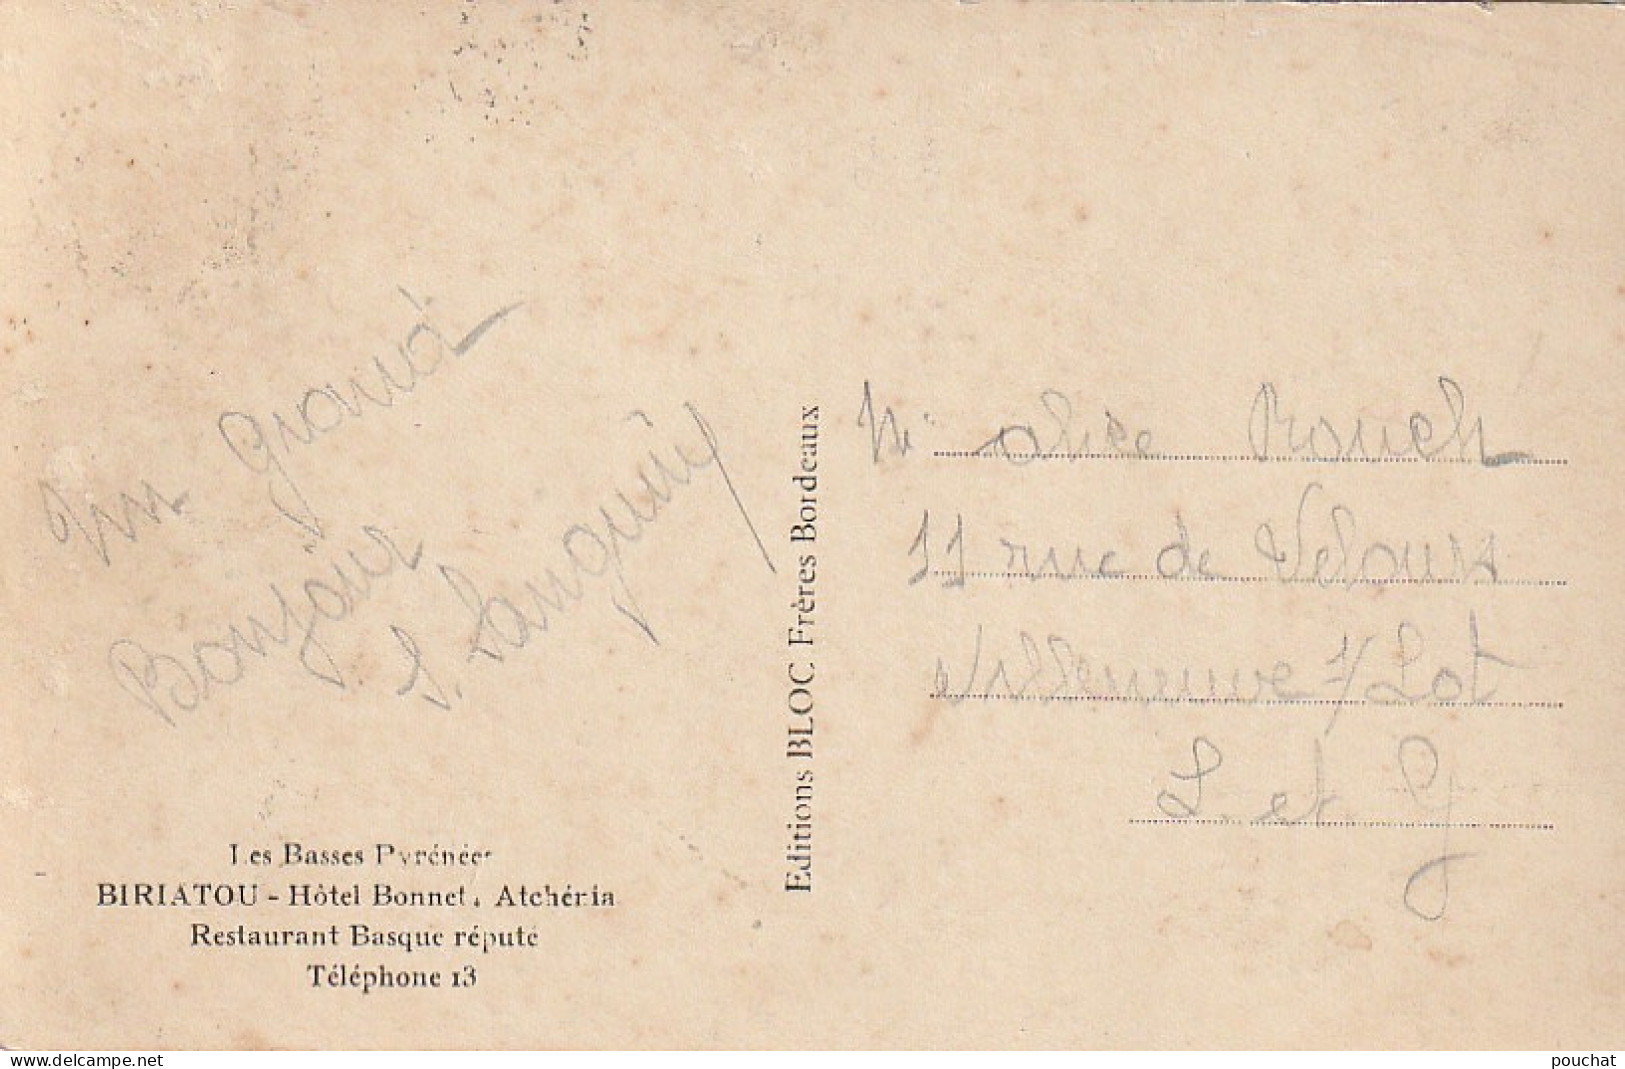 un grand
Bonjour
S.
Les Basses Pyrénées
BIRIATOU - Hôtel Bonnet, Atchénia
Restaurant Basque réputé
Téléphone 13
Editions BLOC Frères Bordeaux
Me alice Rouch
11 rue de Velours
Villeneuve s/Lot
L. et. G
www.delcampe.net
pouchat